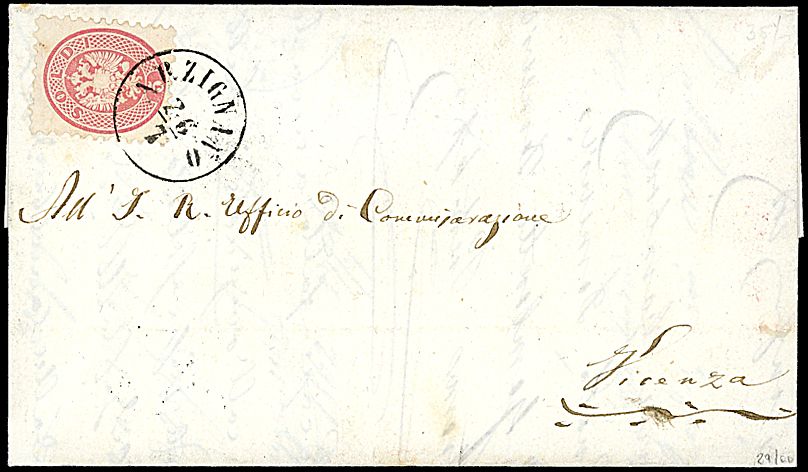 SOLDI 5
ARZIGNANO
26
7
All' I. R. Ufficio di Commisurazione
Vicenza
29/00